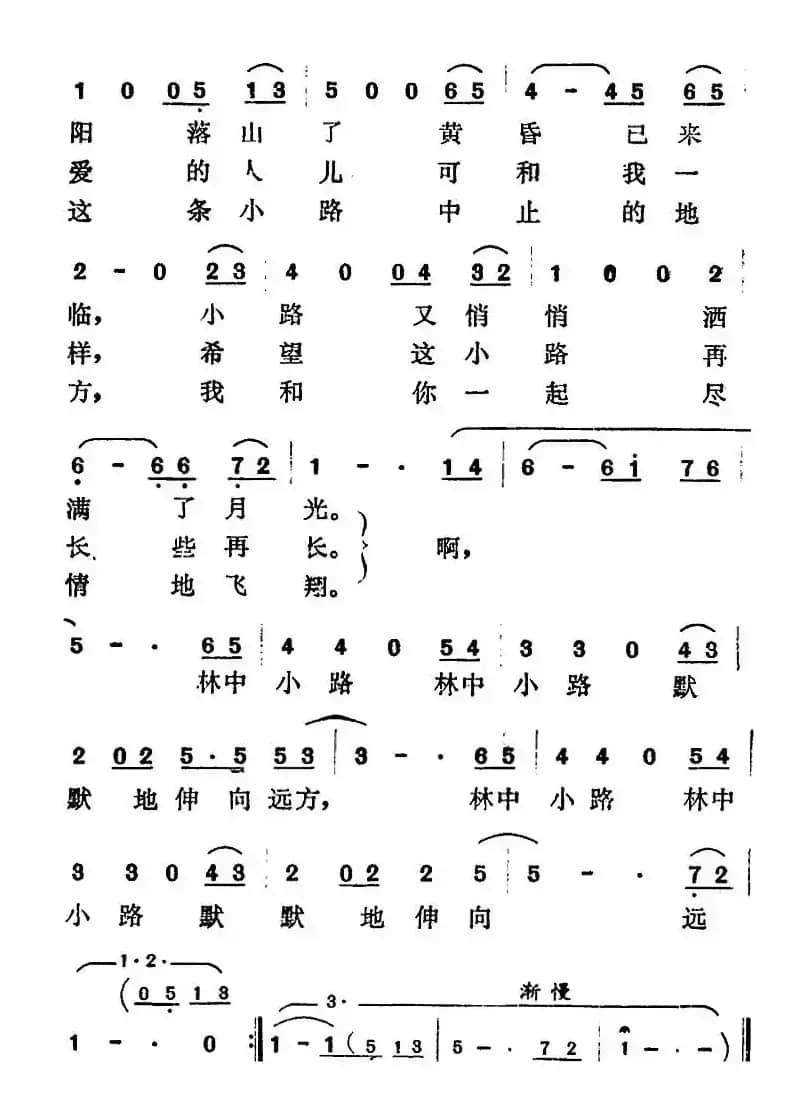 1 0 0 5 1 3 5 0 0 6 5 4 - 4 5 6 5
阳 落 山 了 黄 昏 已 来
爱 的 人 儿 可 和 我 一
这 条 小 路 中 止 的 地
2 - 0 2 3 4 0 0 4 3 2 1 0 0 2
临, 小 路 又 悄 悄 洒
样, 希 望 这 小 路 再
方, 我 和 你 一 起 尽
6 - 6 6 7 2 1 - · 1 4 6 - 6 1 7 6
满 了 月 光。
长 些 再 长。 啊,
情 地 飞 翔。
5 - · 6 5 4 4 0 5 4 3 3 0 4 3
林中 小 路 林中 小 路 默
2 0 2 5 · 5 5 3 3 - · 6 5 4 4 0 5 4
默 地 伸 向 远方, 林中 小 路 林中
3 3 0 4 3 2 0 2 2 5 5 - · 7 2
小 路 默 默 地 伸 向 远
1 · 2 ·
(0 5 1 3
3 · 渐 慢
1 - · 0 :‖ 1 - 1 ( 5 1 3 5 - · 7 2 1 - · )